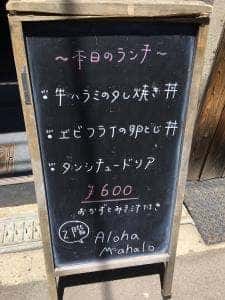 ～本日のランチ～
・牛ハラミのタレ焼き丼
・エビフライの卵とじ丼
・タンシチュードリア
¥600
おかずとみそ汁付き
2階
Aloha
Mahalo